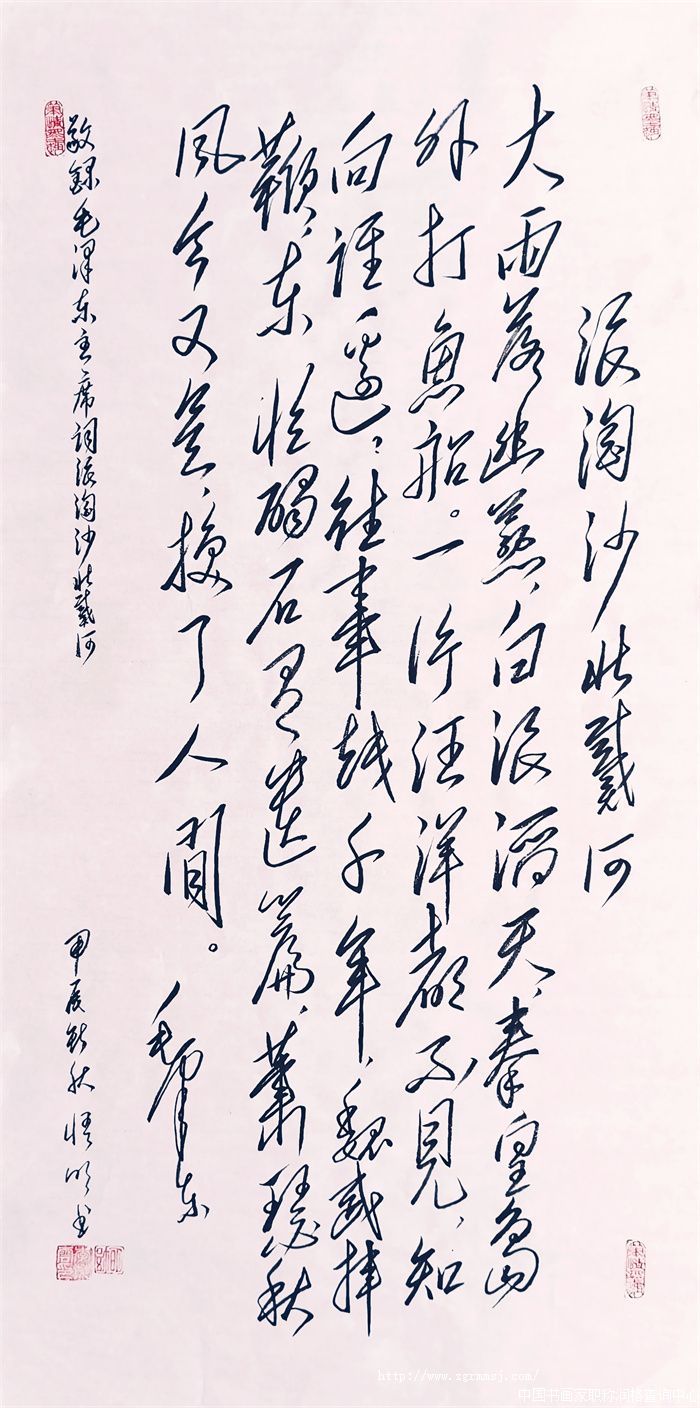 浪淘沙北戴河
大雨落幽燕、白浪滔天、秦皇島
外打魚船。一片汪洋都不見、知
向誰邊、往事越千年、魏武揮
鞭、东临碣石有遺篇、蕭瑟秋
风今又是、换了人間。
毛泽东
敬録毛泽东主席詞浪淘沙北戴河
甲辰新秋悟明书
http://www.zgrmmsj.com/
中国书画家职称润格查询中心